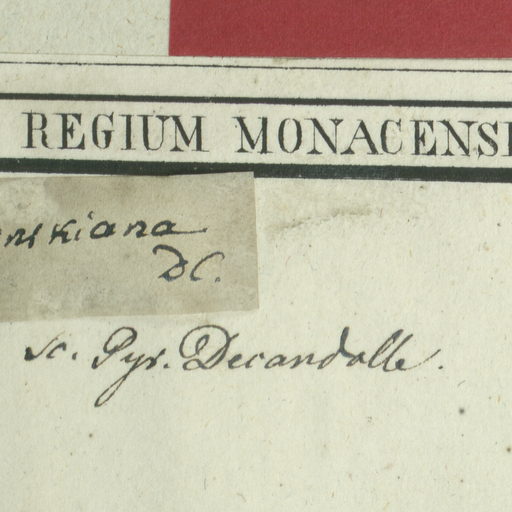 REGIUM MONACENS
nskiana
DC.
sc. Pyr. Decandolle.